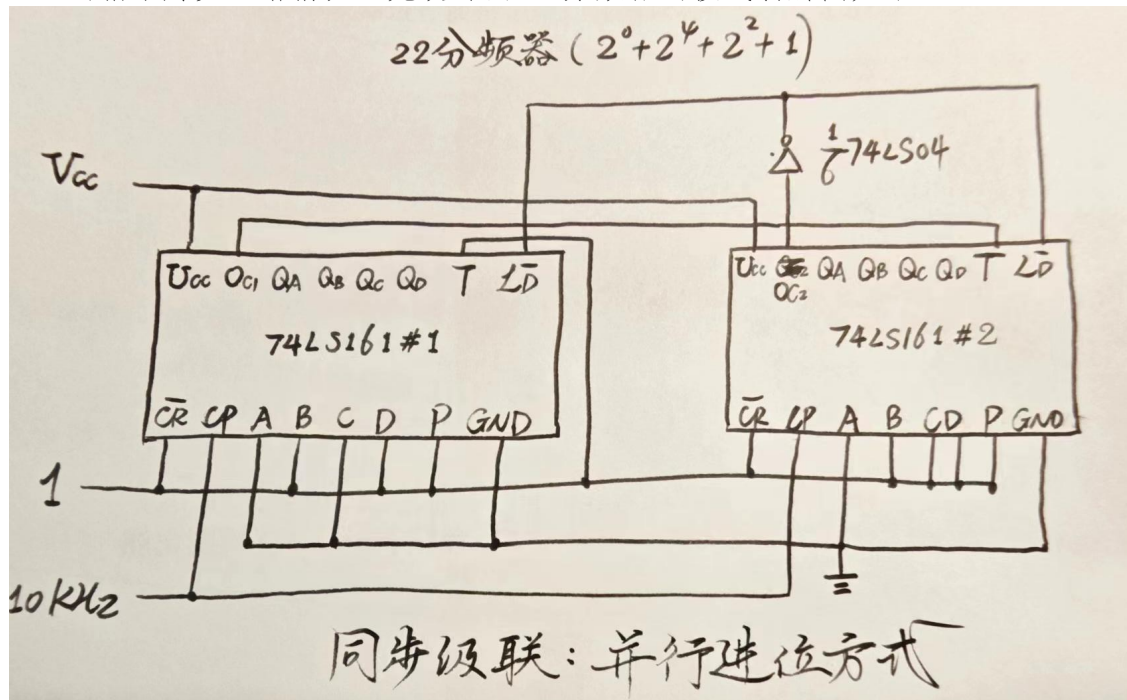 22分频器(2⁰+2⁴+2²+1)
1/6 74LS04
Vcc
Ucc OC1 QA QB QC QD T L̅D̅
74LS161#1
C̅R̅ CP A B C D P GND
Ucc OC2 QA QB QC QD T L̅D̅
74LS161#2
C̅R̅ CP A B C D P GND
1
10KHz
同步级联:并行进位方式